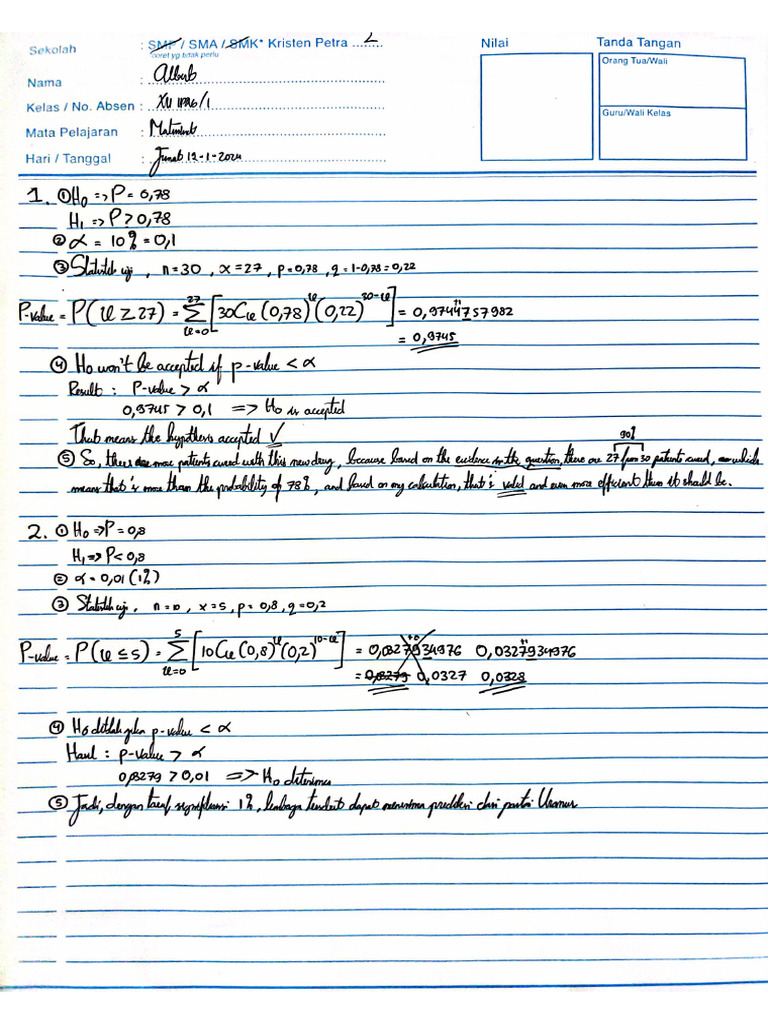 Sekolah : SMP / SMA / SMK* Kristen Petra ........ 2
*coret yg tidak perlu
Nama : Albert
Kelas / No. Absen : XII IPA6/1
Mata Pelajaran :
Hari / Tanggal : Jumat 12-1-2024
Nilai
Tanda Tangan
Orang Tua/Wali
Guru/Wali Kelas
1. ① H₀ => P = 0,78
H₁ => P > 0,78
② α = 10% = 0,1
③ Statistik uji, n = 30, x = 27, p = 0,78, q = 1-0,78 = 0,22
P-value = P(x ≥ 27) = 27 Σ x=0 [30Cx (0,78)^x (0,22)^30-x] = 0,974475 7982
= 0,9745
④ Ho won't be accepted if p-value < α
Result : P-value > α
0,9745 > 0,1 => Ho is accepted
That means the hypothesis accepted ✓
90%
⑤ So, there are more patients cured with this new drug, because based on the evidence in the question, there are 27 from 30 patients cured, which
means that's more than the probability of 78%, and based on my calculation, that's valid and even more efficient than it should be.
2. ① H₀ => P = 0,8
H₁ => P < 0,8
② α = 0,01 (1%)
③ Statistik uji, n = 10, x = 5, p = 0,8, q = 0,2
P-value = P(x ≤ 5) = 5 Σ x=0 [10Cx (0,8)^x (0,2)^10-x] = 0,0327934976
= 0,0279 0,0327 0,0328
④ Ho ditolak jika p-value < α
Hasil : p-value > α
0,8279 > 0,01 => Ho diterima
⑤ Jadi, dengan taraf signifikansi 1%, lembaga tersebut dapat menerima prediksi dari partai